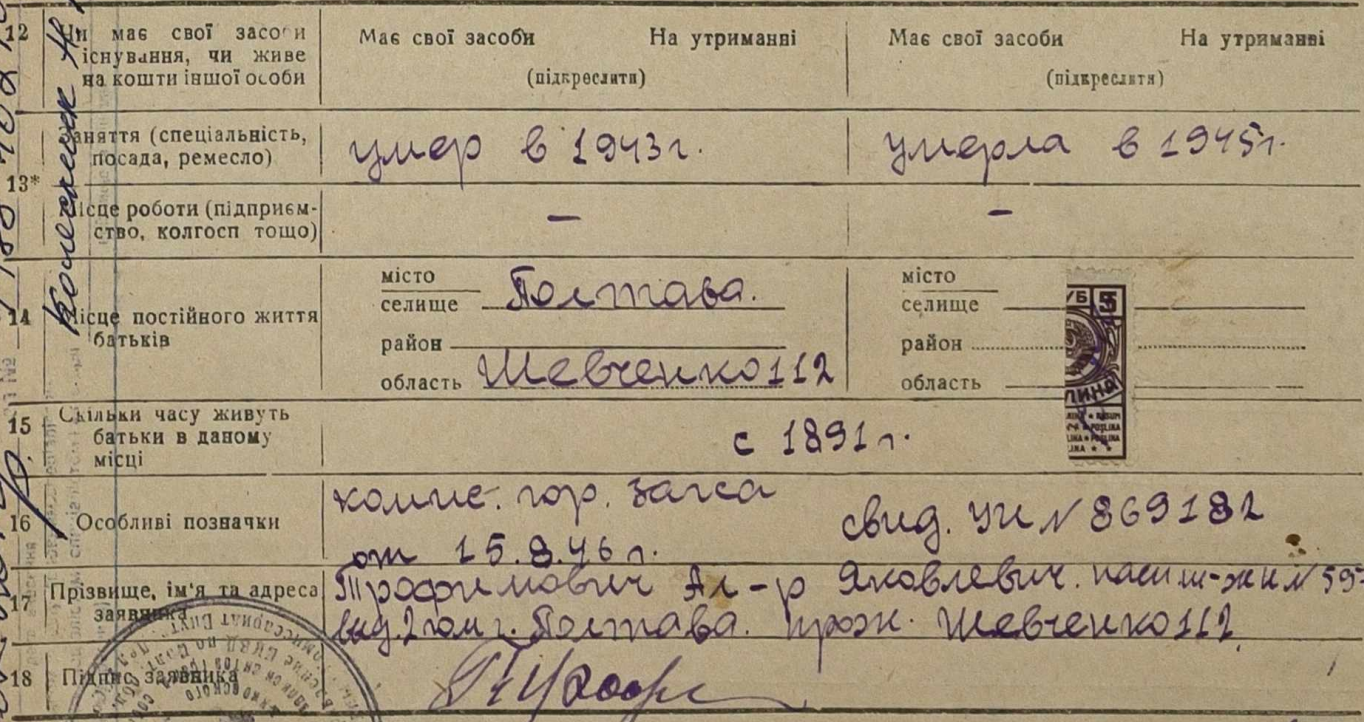 12
Чи має свої засоби
існування, чи живе
на кошти іншої особи
Має свої засоби На утриманні
(підкреслити)
Має свої засоби На утриманні
(підкреслити)
13*
Заняття (спеціальність,
посада, ремесло)
умер в 1943 г.
умерла в 1945 г.
Місце роботи (підприєм-
ство, колгосп тощо)
—
—
14
Місце постійного життя
батьків
місто
селище Полтава.
район
область Шевченко 112
місто
селище
район
область
УБ 5
15
Скільки часу живуть
батьки в даному
місці
с 1891 г.
16
Особливі позначки
гор. загса
от 15.8.46 г.
свид. № 869182
17
Прізвище, ім'я та адреса
заявника
Трофимович Ал-р Яковлевич.
вид. 2 гом г. Полтава. прож. Шевченко 112
18
Підпис заявника